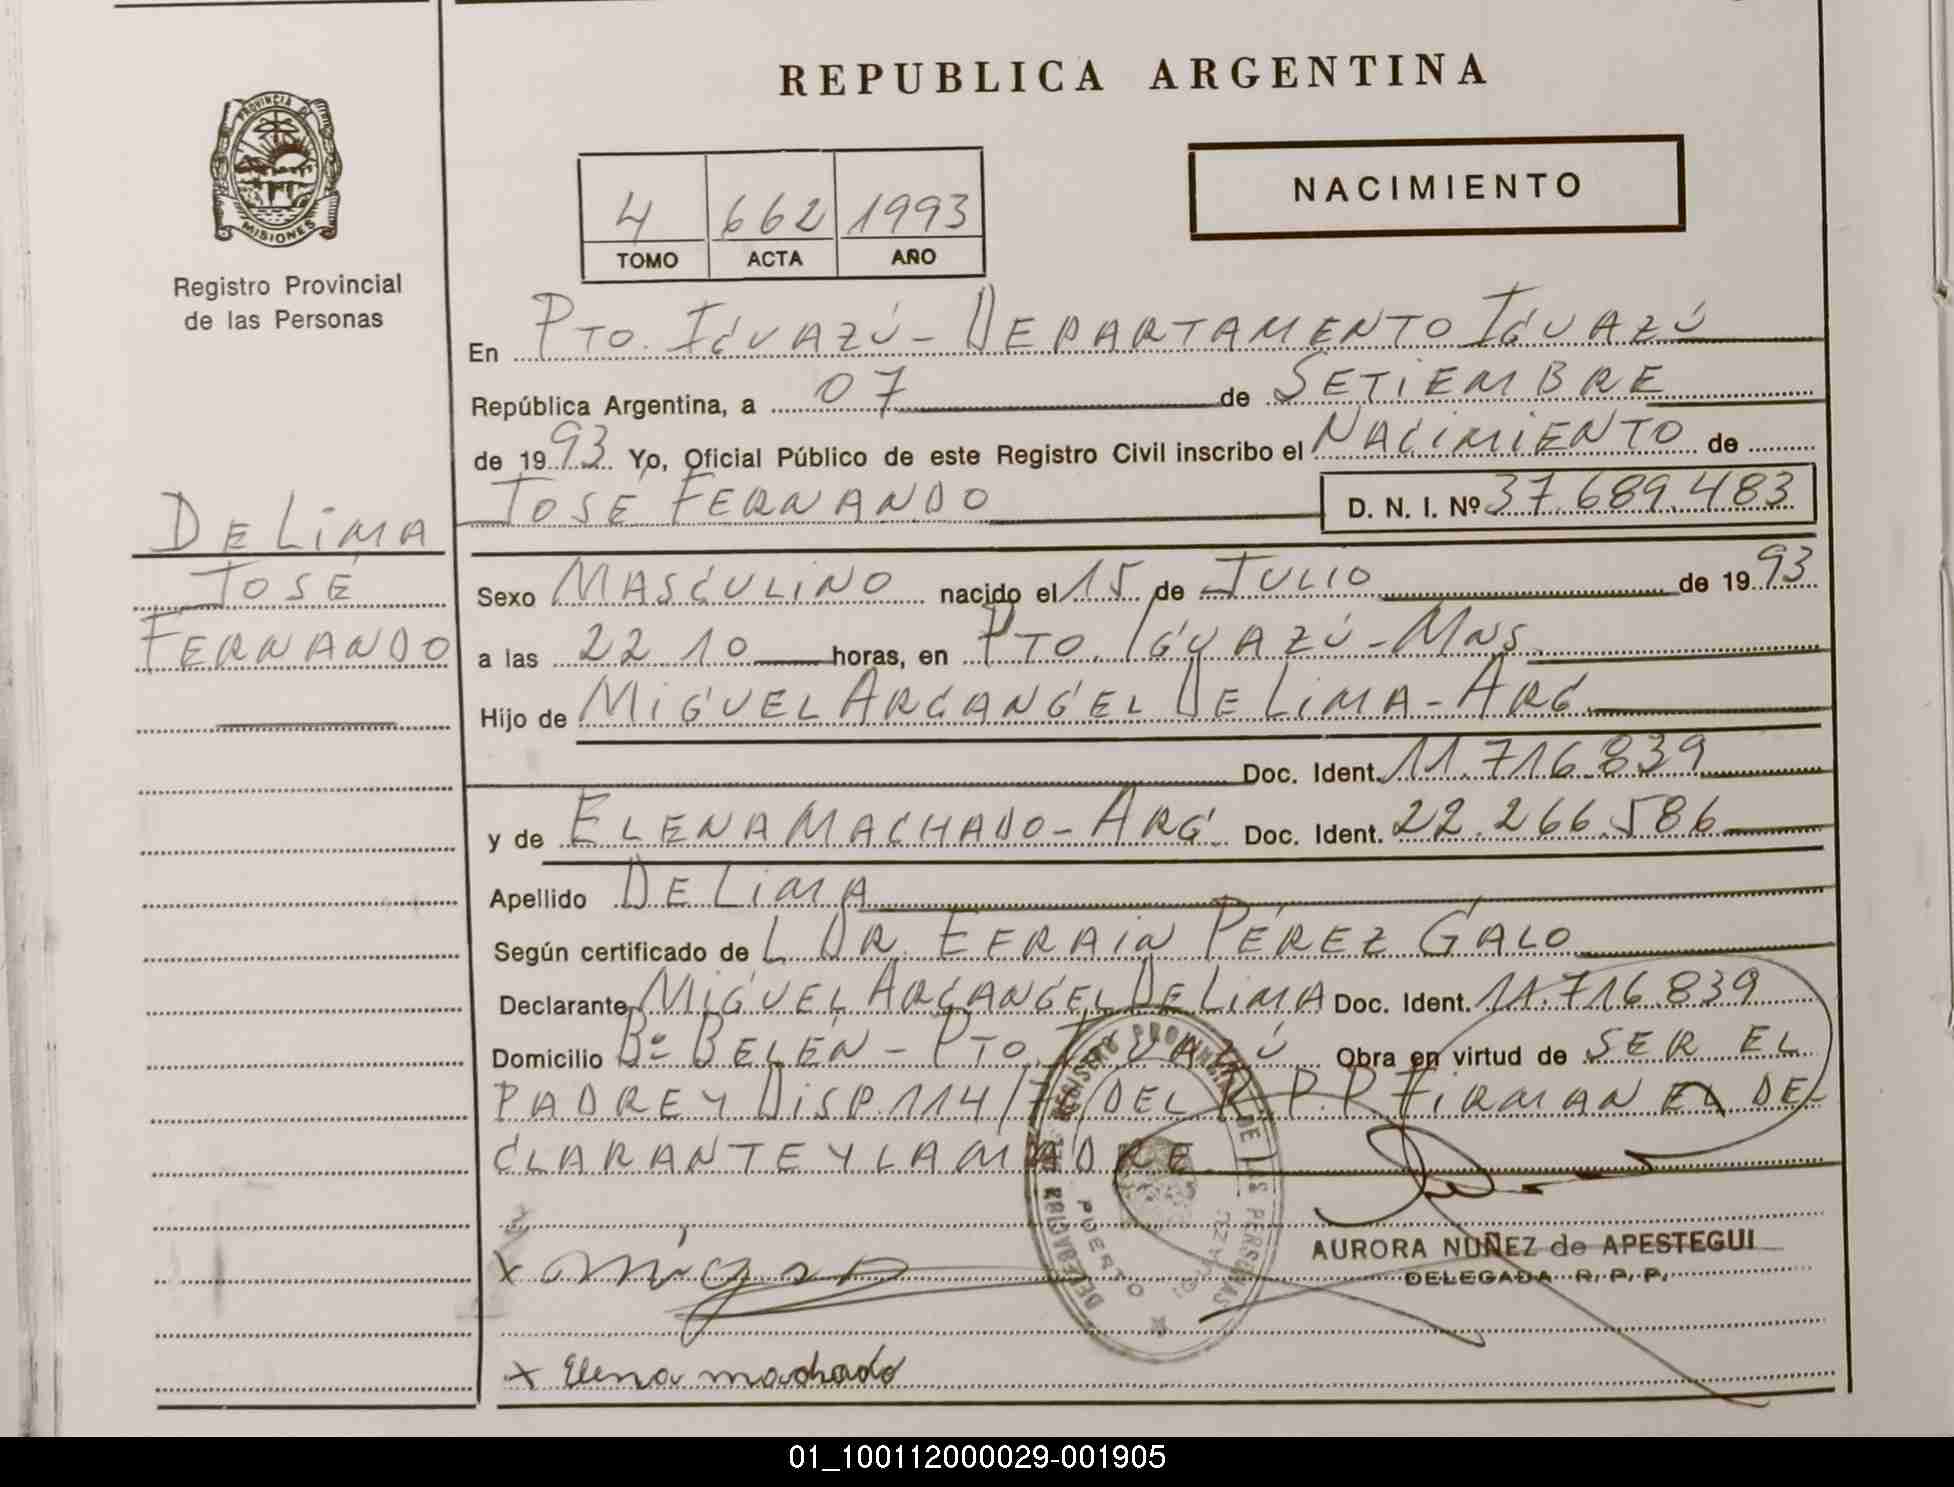 REPUBLICA ARGENTINA
PROVINCIA DE
MISIONES
Registro Provincial
de las Personas
NACIMIENTO
4 662 1993
TOMO ACTA AÑO
En PTO. IGUAZÚ - DEPARTAMENTO IGUAZÚ
República Argentina, a 07 de SETIEMBRE
de 1993 Yo, Oficial Público de este Registro Civil inscribo el NACIMIENTO de
JOSE FERNANDO D. N. I. Nº 37.689.483
DE LIMA
JOSÉ
FERNANDO
Sexo MASCULINO nacido el 15 de JULIO de 1993
a las 22 10 horas, en PTO. IGUAZÚ - MNS.
Hijo de MIGUEL ARCANGEL DE LIMA - ARG.
Doc. Ident. 11.716.839
y de ELENA MACHADO - ARG. Doc. Ident. 22.266.586
Apellido DE LIMA
Según certificado de L DR. EFRAIN PÉREZ GALO
Declarante MIGUEL ARCANGEL DE LIMA Doc. Ident. 11.716.839
Domicilio Bº BELÉN - PTO. IGUAZÚ Obra en virtud de SER EL
PADRE Y DISP. 114/ DEL R.P.P. FIRMAN EL DE-
CLARANTE Y LA MADRE.
REGISTRO PROVINCIAL DE LAS PERSONAS
PUERTO IGUAZU
AURORA NUÑEZ de APESTEGUI
DELEGADA R. P. P.
x Elena machado
01_100112000029-001905